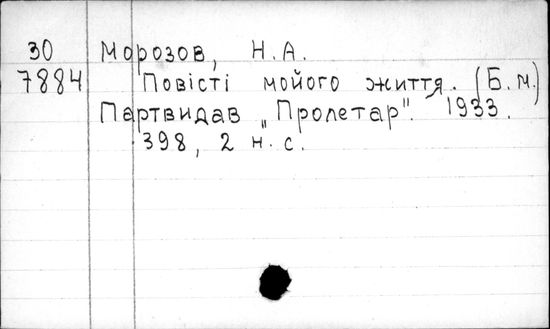 30 Морозов, Н.А.
7884 Повісті мойого життя. (Б.м.)
Партвидав „Пролетар". 1933.
398, 2 н.с.